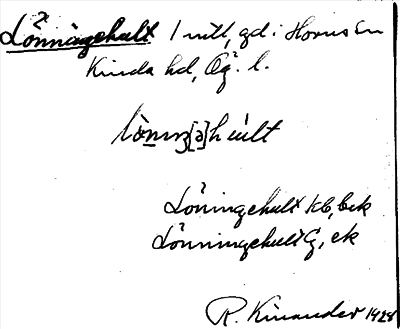 Lönningehult 1 mtl, gd i Horns sn
Kinda hd, Ög. l.
Löningehult kb, bek
Lönningehult G, ek
R. Kinander 1928